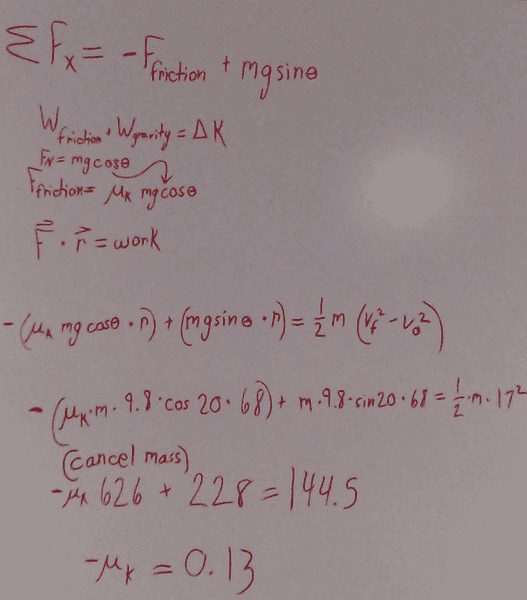 ΣFx = -Ffriction + mgsinθ
Wfriction + Wgravity = ΔK
FN = mgcosθ
Ffriction = μk mgcosθ
F⃗ · r⃗ = work
-(μk mgcosθ · r⃗) + (mgsinθ · r⃗) = 1/2 m (vf² - v0²)
-(μk·m·9.8·cos 20·68) + m·9.8·sin20·68 = 1/2·m·17²
(cancel mass)
-μk 626 + 228 = 144.5
-μk = 0.13